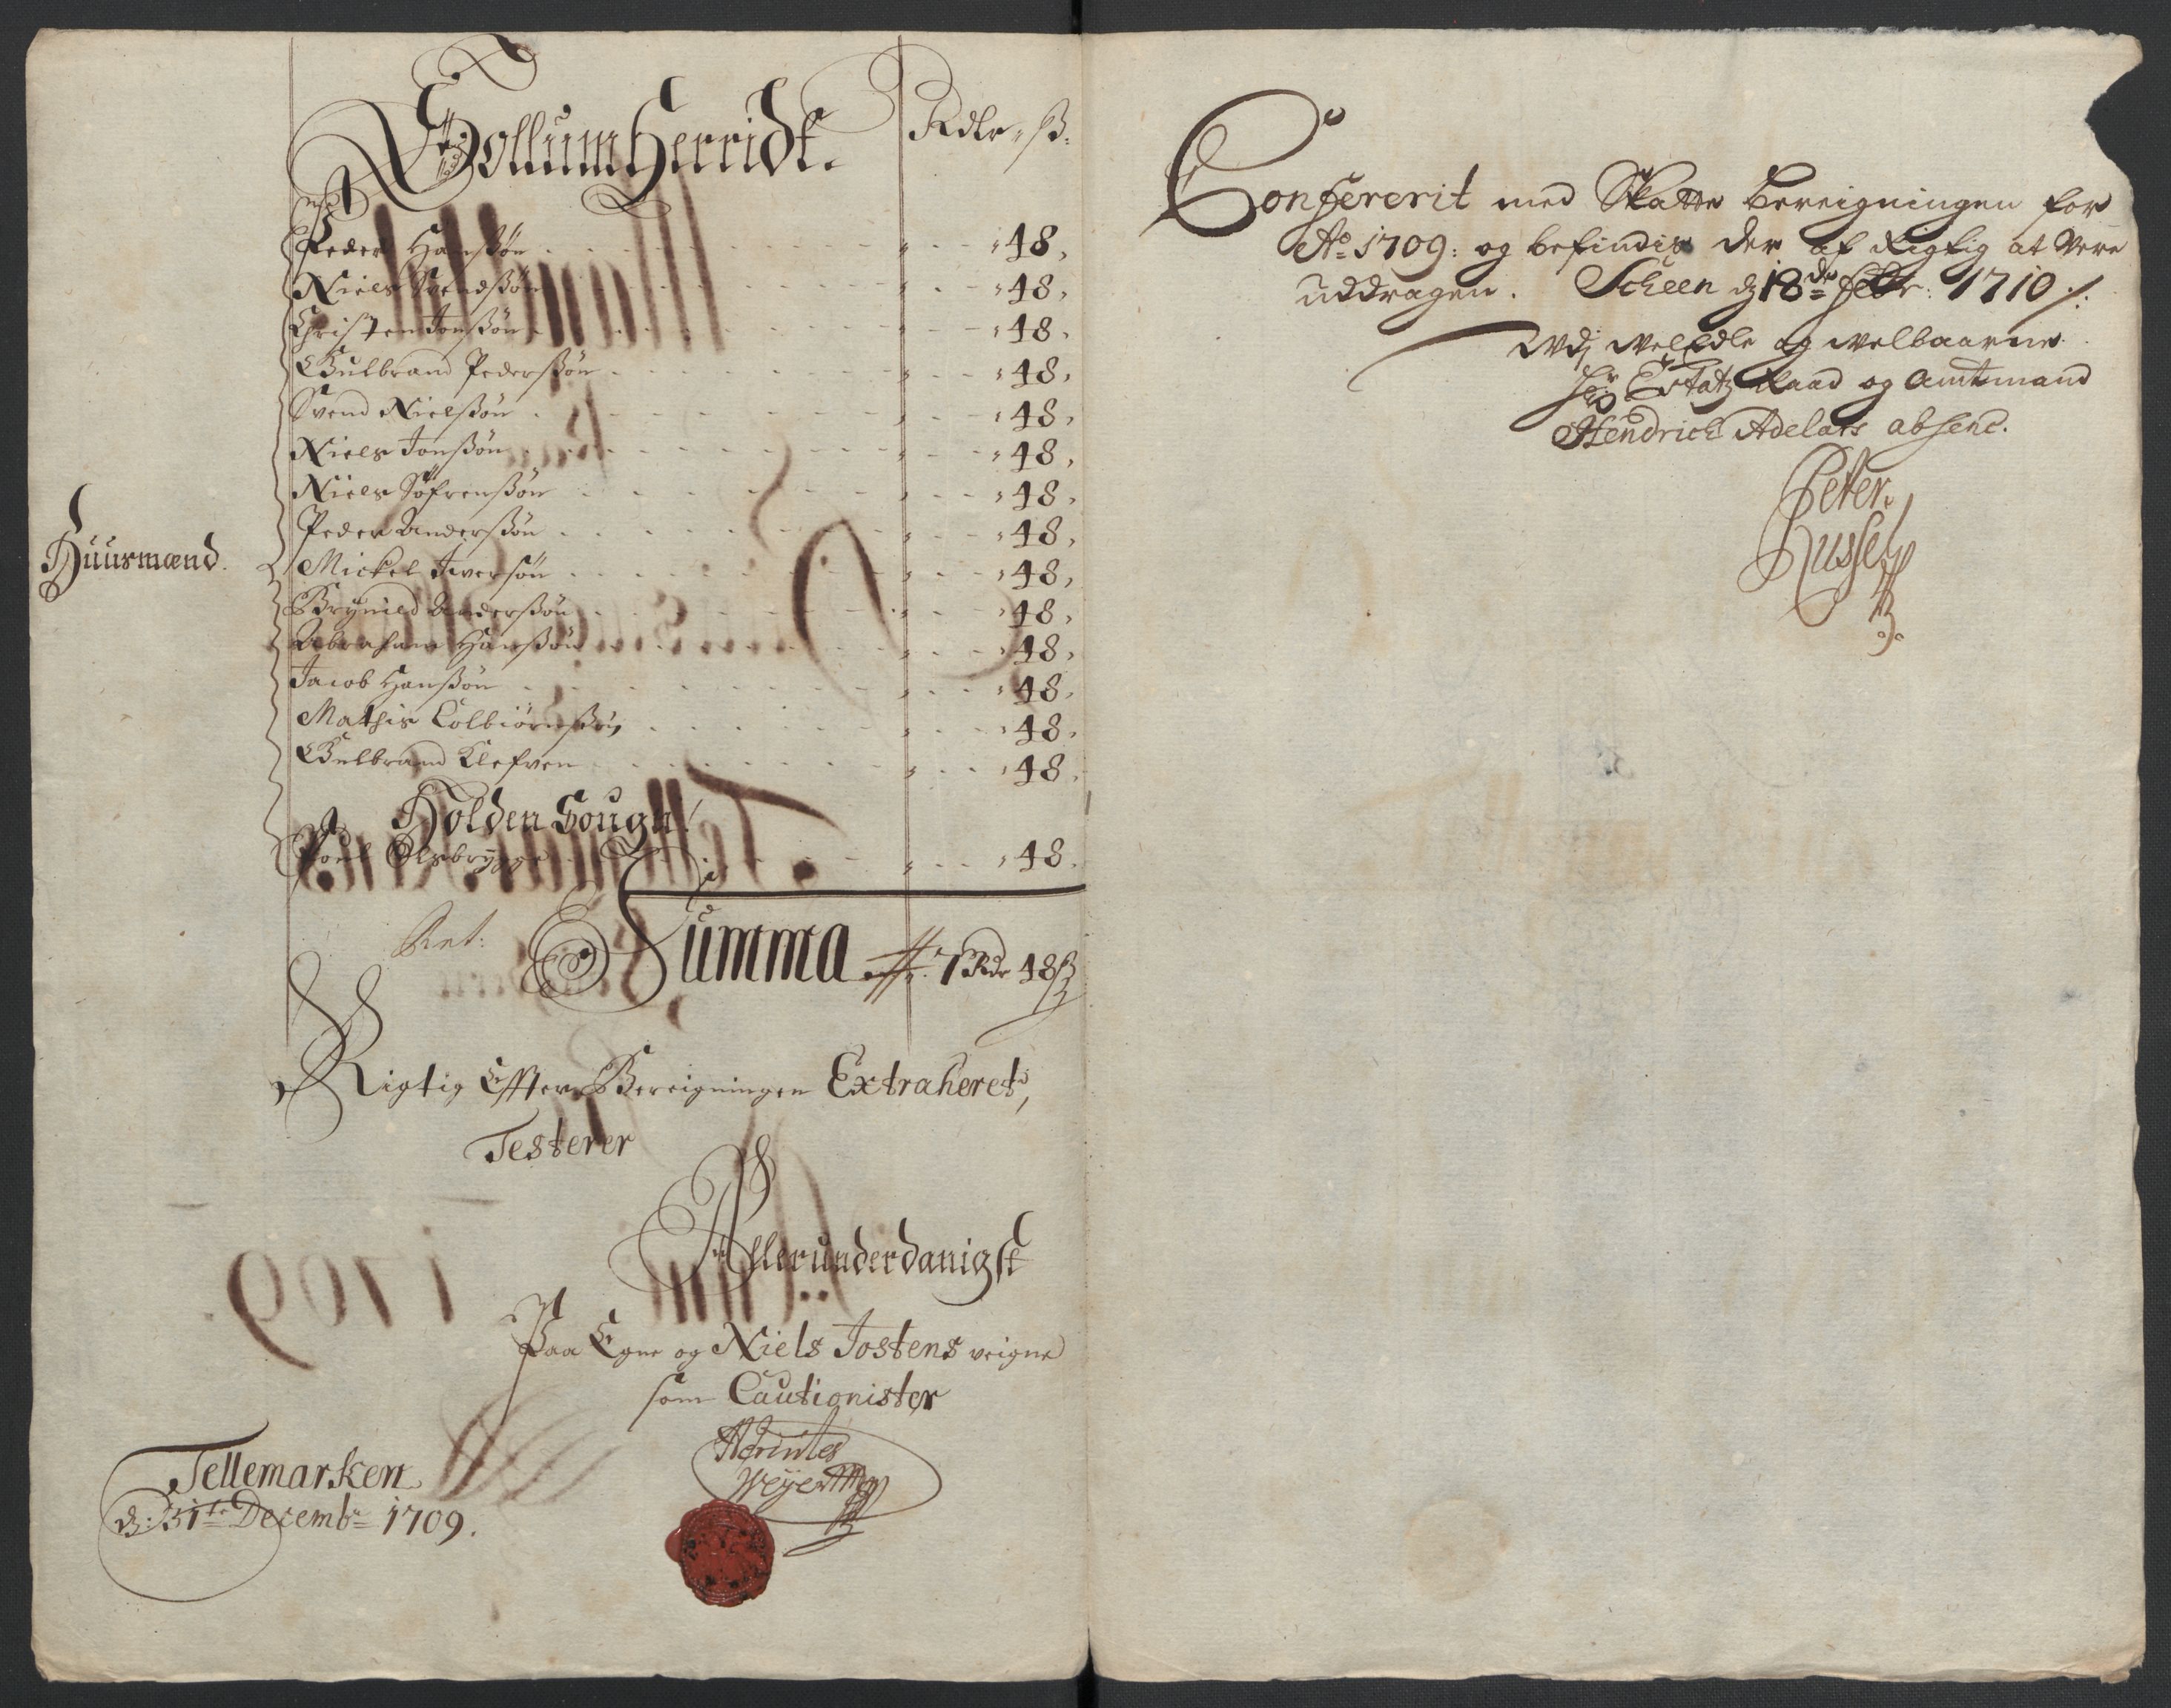 Sollum Herridt. Rdlr ß:
Huusmænd.
Peder Hanßøn 48,
Niels Svendßøn 48,
Christen Jonßøn 48,
Gulbrand Pederßøn 48,
Svend Nielßøn 48,
Niels Jonßøn 48,
Niels Søfrenßøn 48,
Peder Anderßøn 48,
Mickel Iversøn 48,
Brynild Anderßøn 48,
Abraham Hanßøn 48,
Jacob Hanßøn 48,
Mathis Colbiørnßøn 48,
Gulbrand Klefven 48,
Holden Sougn!
Poul 48.
Summa 7 Rdr 48 ß
Rigtig Effter Bereigningen Extraheret,
Testerer
Allerunderdanigst
Paa Egne og Niels Jostens veigne
som Cautionister
Weyer
Tellemarken
d: 31te Decembr 1709.
Confererit med Skatte Bereigningen for
Ao 1709: og befindis der af Rigtig at Vere
uddragen. Scheen d 18de Febr: 1710 /:
Udj WelEdle og welbaarne
Hr Etatz Raad og Amtmand
Hendrich Adelaers absenc.
Peter
Russel